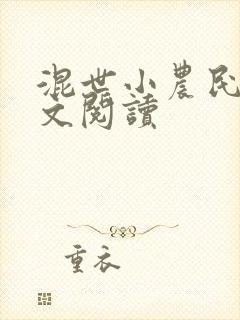 混世小農民
文閱讀
重衣